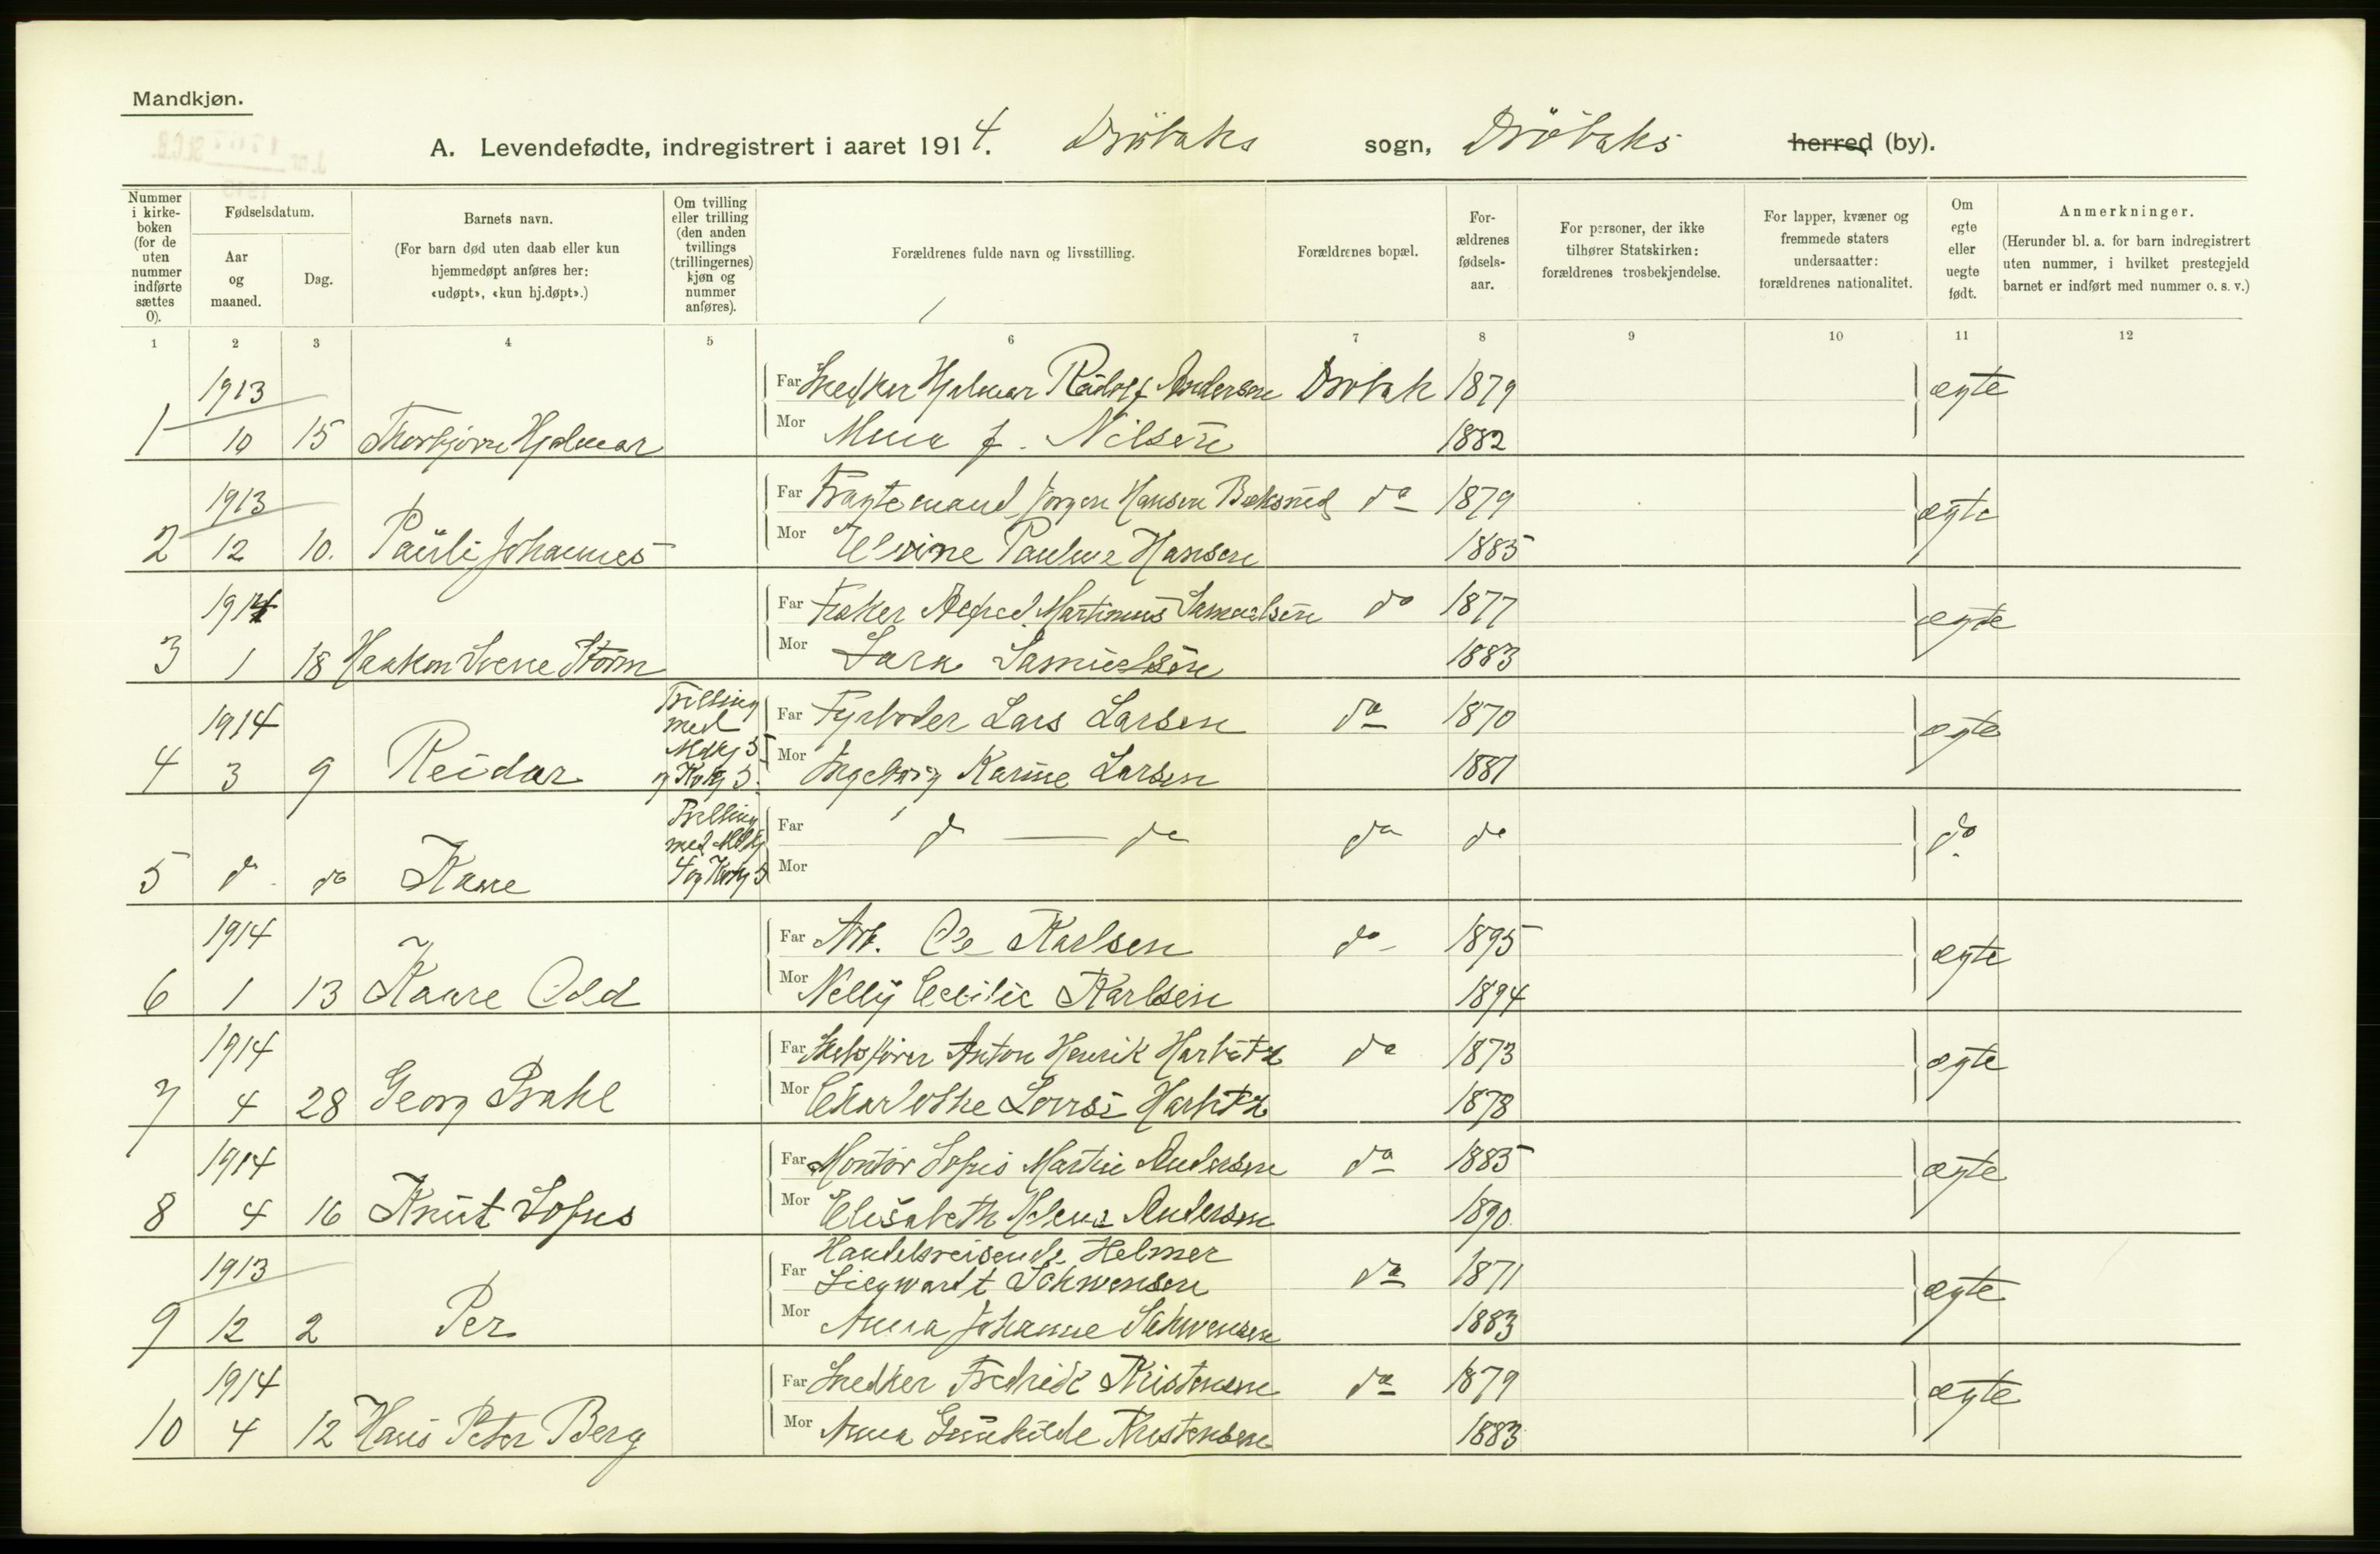 Mandkjøn.
A. Levendefødte, indregistrert i aaret 1914. Drøbaks sogn, Drøbaks herred (by).
Nummer i kirke-boken (for de uten nummer indførte sættes 0).
Fødselsdatum.
Aar og maaned.
Dag.
Barnets navn.
(For barn død uten daab eller kun hjemmedøpt anføres her: «udøpt», «kun hj.døpt».)
Om tvilling eller trilling (den anden tvillings (trillingernes) kjøn og nummer anføres).
Forældrenes fulde navn og livsstilling.
Forældrenes bopæl.
For-ældrenes fødsels-aar.
For personer, der ikke tilhører Statskirken: forældrenes trosbekjendelse.
For lapper, kvæner og fremmede staters undersaatter: forældrenes nationalitet.
Om egte eller uegte født.
Anmerkninger.
(Herunder bl. a. for barn indregistrert uten nummer, i hvilket prestegjeld barnet er indført med nummer o. s. v.)
1 2 3 4 5 6 7 8 9 10 11 12
1913 Far Snedker Hjalmar Rudolf Andersen Drøbak 1879 ægte
1 10 15 Thorbjørn Hjalmar Mor f. Nilsen 1882
1913 Far Fragtemand Jørgen Hansen do 1879 ægte
2 12 10. Pauli Johannes Mor Elvine Pauline Hansen 1885
1914 Far Alfred Martinius Samuelsen do 1877 ægte
3 1 18 Haakon Sverre Storm Mor Lara Samuelsen 1883
1914 Trilling med Mdkj 5 og Kvkj 5. Far Fyrbøder Lars Larsen do 1870 ægte
4 3 9 Reidar Mor Ingeborg Karine Larsen 1881
Trilling med Mdkj 4 og Kvkj 5 Far do — do do do do
5 do do Kaare Mor
1914 Far Arb. Ole Karlsen do 1895 ægte
6 1 13 Kaare Odd Mor Nelly Cecilie Karlsen 1894
1914 Far Anton Henrik Harbitz do 1873 ægte
7 4 28 Georg Prahl Mor Charlotte Lovise Harbitz 1878
1914 Far Montør Sofus Martin Andersen do 1885 ægte
8 4 16 Knut Sofus Mor Elisabeth Helene Andersen 1890
1913 Far Handelsreisende Helmer
Siegwardt Schwensen do 1871 ægte
9 12 2 Per Mor Anna Johanne Schwensen 1883
1914 Far Snedker Fredrik Kristensen do 1879 ægte
10 4 12 Hans Peter Berg Mor Anna Gunhilde Kristensen 1883